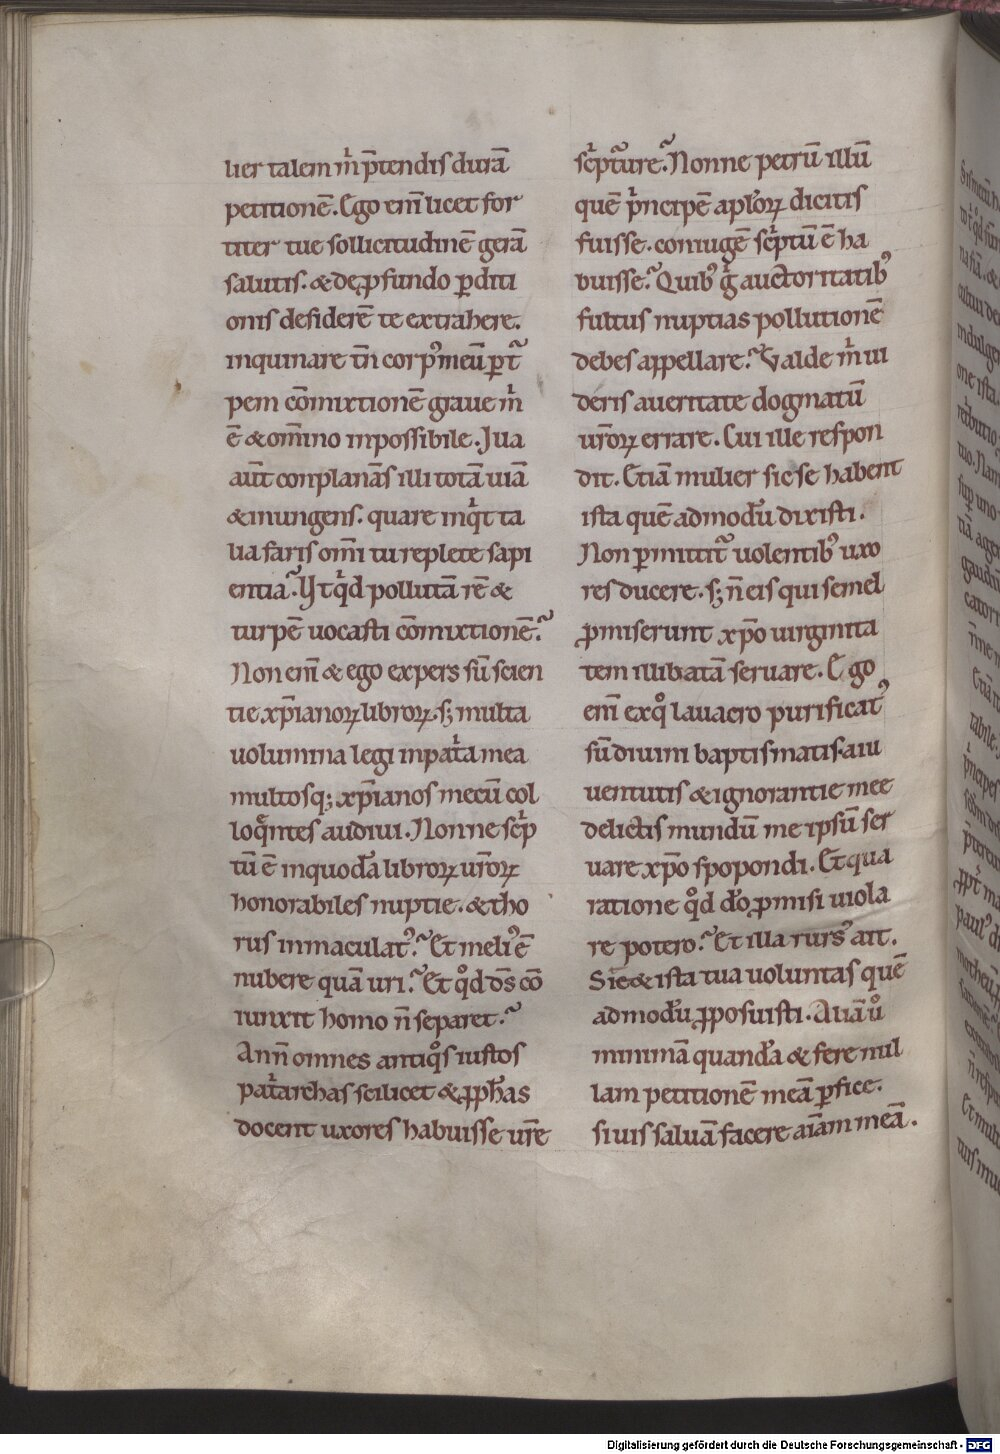 lier talem m̉ p̄tendis durā
petitionē. Ego eni̅ licet for
titer tue sollicitudinē gerā
salutis. & de ꝓfundo ꝑditi
onis desiderē te extrahere.
inquinare tn̄ corpꝰ meū ꝑ t᷑
pem cōmixtionē graue m̉
ē & om̄ino inpossibile. Jlla
aūt conplanās illi totā uiā
& inungens. quare inq̇t ta
lia faris om̄i tu replete sapi
entia? Vt q̇d pollutā rē &
turpē uocasti cōmixtionē?
Non eni̅ & ego expers sū scien
tie xp̄ianoꝝ libroꝝ. sꝫ multa
uolumina legi in pat̉a mea
multosqꝫ xp̄ianos mecū col
loq̄ntes audiui. Nonne sc̉p
tū ē in quodā libroꝝ ur̄oꝝ
honorabiles nuptie. & tho
rus inmaculatꝰ? Et meliꝰ ē
nubere quā uri? Et qͦd ds̄ cō
iunxit homo n̄ separet?
Ann̄ omnes antiqͦs iustos
pat̉archas scilicet & ꝓph̄as
docent uxores habuisse ur̄e
sc̉pt᷑ure? Nonne petrū illū
quē p̉ncipē apl̓oꝝ dicitis
fuisse. coniugē sc̉ptū ē ha
buisse? Quibꝰ g̉ auctoritatibꝰ
fultus nuptias pollutionē
debes appellare? Valde m̉ ui
deris a ueritate dogmatū
ur̄oꝝ errare. Cui ille respon
dit. Etiā mulier sic se habent
ista quē admodū dixisti.
Non ꝑmittit᷑ uolentibꝰ uxo
res ducere. sꝫ n̄ eis qui semel
ꝓmiserunt xp̄o uirginita
tem illibatā seruare. Ego
eni̅ ex qͦ lauacro purificatꝰ
sū diuini baptismatis. a iu
uentutis & ignorantie mee
delictis mundū me ipsū ser
uare xp̄o spopondi. Et qua
ratione qͦd d̄o ꝓmisi uiola
re potero? Et illa rursꝰ ait.
Sic & ista tua uoluntas quē
admodū ꝓposuisti. Aliā uͦ
minimā quandā & fere nul
lam petitionē meā ꝑfice.
si uis saluā facere aīam meā.
Digitalisierung gefördert durch die Deutsche Forschungsgemeinschaft - DFG